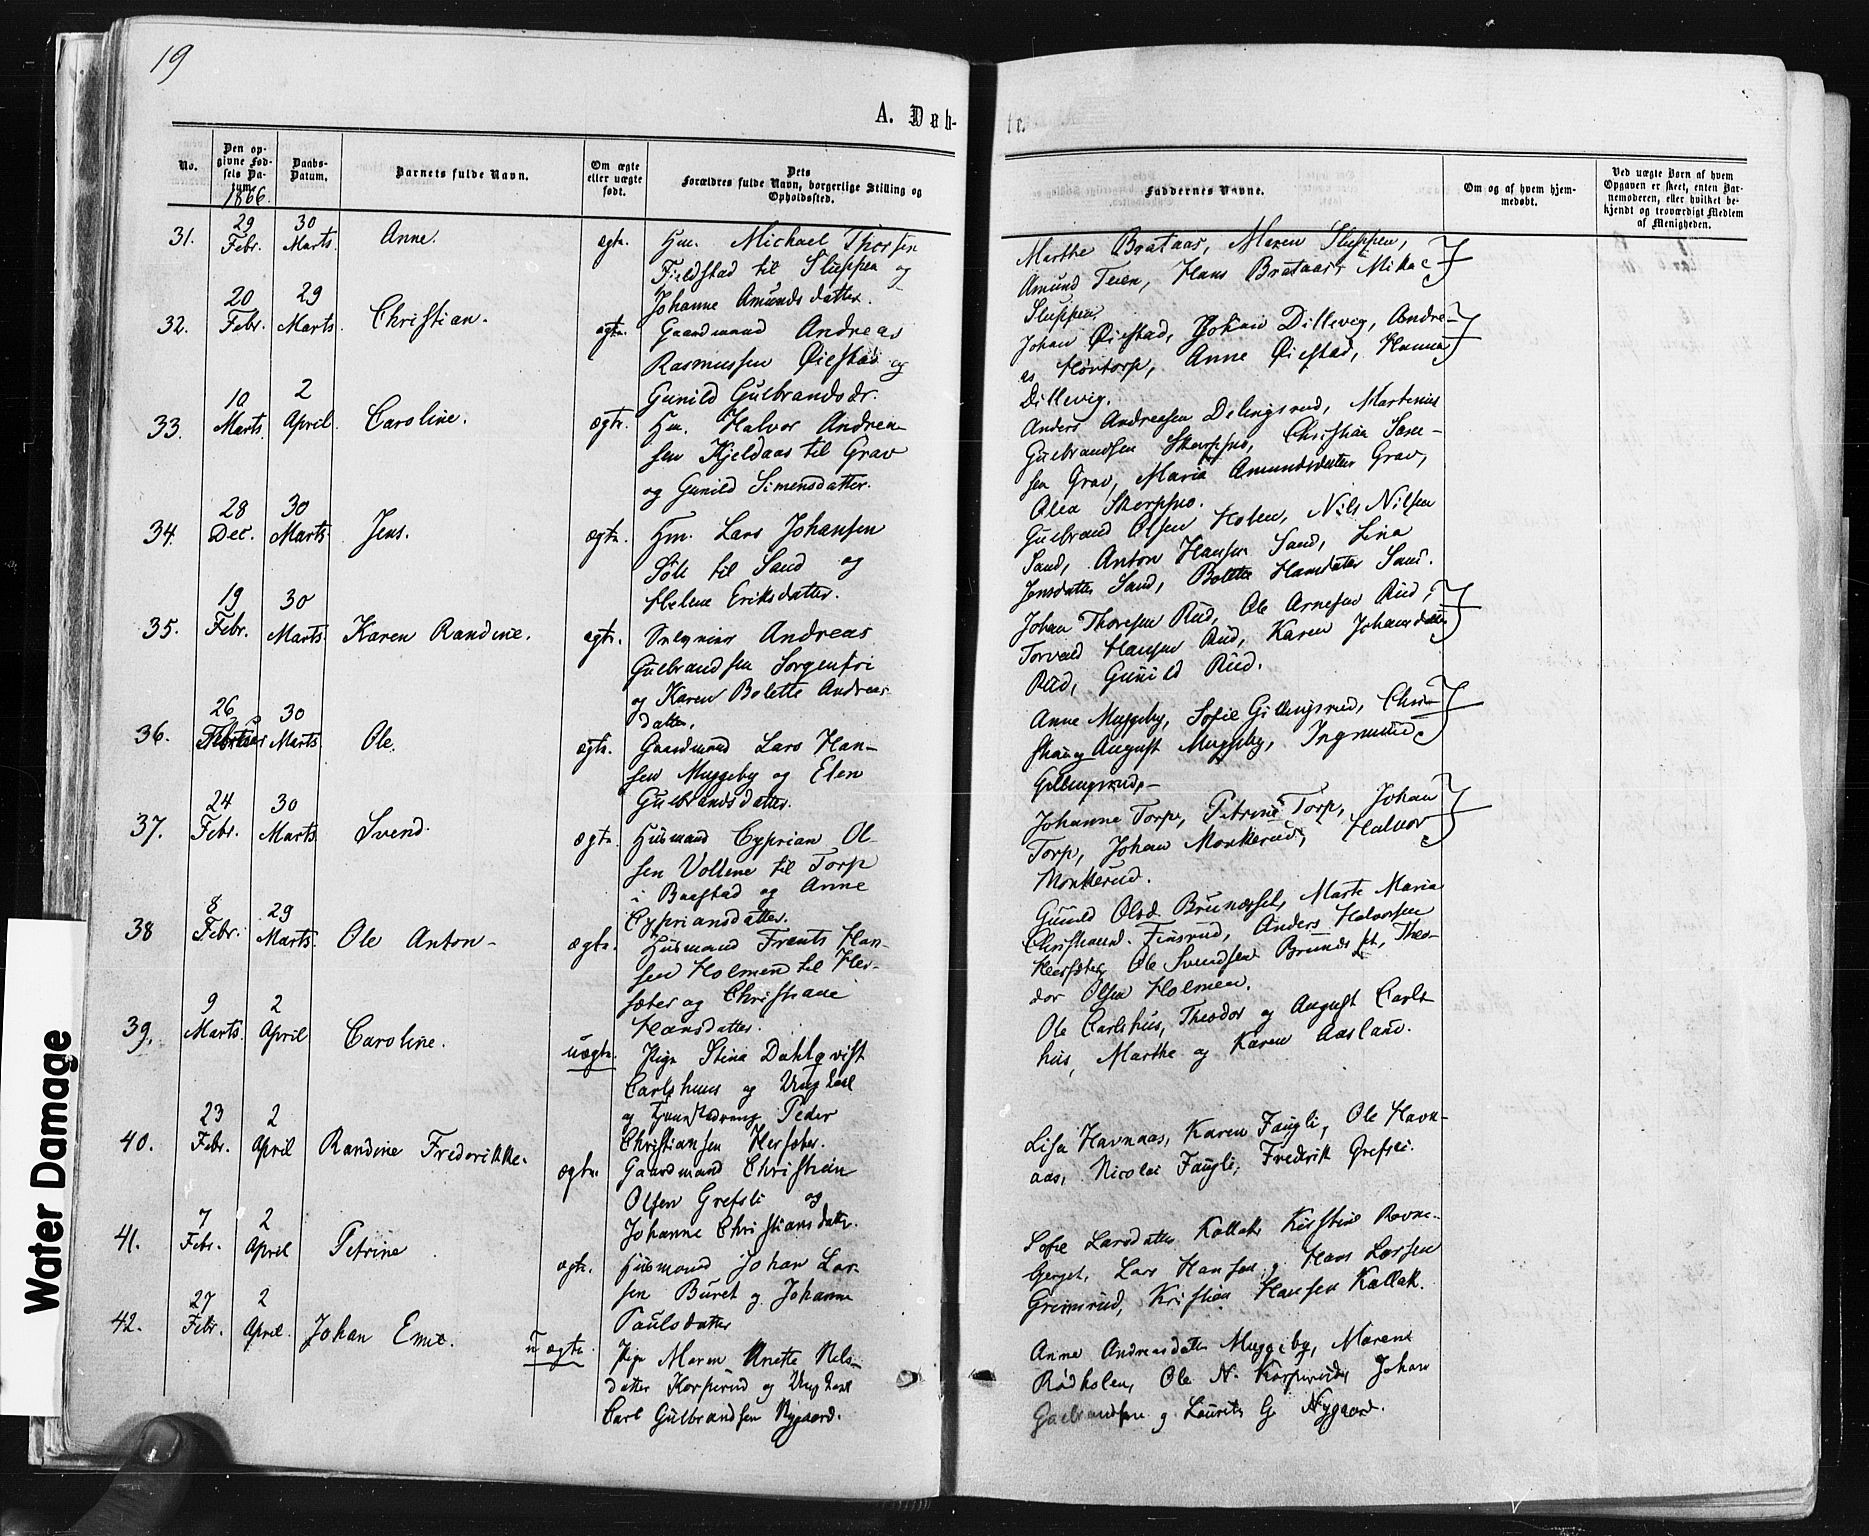 19
A. Døb-
te.
No.
Den op-
givne Fød-
sels Da-
tum.
1866.
Daabs-
Datum.
Barnets fulde Navn.
Om ægte
eller uægte
født.
Dets
Forældres fulde Navn, borgerlige Stilling og
Opholdssted.
Faddernes Navne.
Om og af hvem hjem-
medøbt.
Ved uægte Børn af hvem
Opgaven er skeet, enten Bar-
nemoderen, eller hvilket be-
kjendt og troværdigt Medlem
af Menigheden.
31.
29
Febr.
30
Marts.
Anne.
ægte.
Hm. Michael Thorsen
Fjeldstad til Sluppen og
Johanne Amundsdatter.
Marthe Brataas, Maren Sluppen,
Amund Teien, Hans Brataas, Mikal
Sluppen.
32.
20
Febr.
29
Marts.
Christian.
ægte.
Gaardmand Andreas
Rasmussen Øiestad og
Gunild Gulbrandsdr.
Johan Øiestad, Johan Dillevig, Andre-
as Hovtorp, Anne Øiestad, Hanna
Dillevig.
33.
10
Marts.
2
April.
Caroline.
ægte.
Hm. Halvor Andrea-
sen Kjeldaas til Grav
og Gunild Simensdatter.
Anders Andreasen Delingsrud, Martinius
Gulbrandsen Skorppno, Christian Lar-
sen Grav, Maria Amundsdatter Grav,
Olea Skorppno.
34.
28
Dec.
30
Marts
Jens.
ægte.
Hm. Lars Johansen
til Sand og
Helene Eriksdatter.
Gulbrand Olsen Holen, Nils Nilsen
Sand, Anton Hansen Sand, Lina
Jensdatter Sand, Bolette Hansdatter Sand.
35.
19
Febr.
30
Marts
Karen Randine.
ægte.
Andreas
Gulbrandsen Sorgenfri
og Karen Bolette Andreas-
datter.
Johan Thoresen Rud, Ole Arnesen Rud,
Torvald Hansen Rud, Karen Johansdatter
Rud, Gunild Rud.
36.
26
30
Marts
Ole.
ægte.
Gaardmand Lars Han-
sen Muggeby og Elen
Gulbrandsdatter.
Anne Muggeby, Sofie Gillingsrud, Chri-
stian og August Muggeby, Ingmund
Gillingsrud.
37.
24
Febr.
30
Marts
Svend.
ægte.
Husmand Cyprian Ol-
sen Vollene til Torp
i Baastad og Anne
Cypriansdatter.
Johanne Torp, Petrine Torp, Johan
Torp, Johan Monkerud, Halvor
Monkerud.
38
8
Febr.
29
Marts.
Ole Anton
ægte.
Husmand Frants Han-
sen Holmen til Her-
sæter og Christiane
Hansdatter.
Gunild Olsd. Brunæset, Marte Maria
Christians. Finsrud, Anders Halvorsen
Hersæter, Ole Svendsen Brunæset, Theo-
dor Olsen Holmen.
39.
9
Marts.
2
April
Caroline.
uægte.
Pige Stina Dahlqvist
Carlshuus og Ungkarl
og Peder
Christiansen Hersæter.
Ole Carlshus, Theodor og August Carls-
hus, Marthe og Karen Aasland.
40.
23
Febr.
2
April
Randine Frederikke.
ægte.
Gaardmand Christian
Olsen Grefsli og
Johanne Christiansdatter.
Lisa Havnaas, Karen Faugli, Ole Havn-
aas, Nicolai Faugli, Frederik Grefsli.
41.
7
Febr.
2
April
Petrine
ægte.
Husmand Johan Lar-
sen Buret og Johanne
Paulsdatter
Sofie Larsdatter Kallak, Kirstine Ravne-
berget, Lars Hansen og Hans Larsen
Grimsrud, Kristian Hansen Kallak.
42.
27
Febr.
2
April.
Johan Emil.
uægte.
Pige Maren Anette Nils-
datter Korperud og Ungkarl
Carl Gulbrandsen Nygaard.
Anne Andreasdatter Muggeby, Maren
Rødholen, Ole N. Korperud, Johan
Gulbrandsen og Laurits G. Nygaard.
Water Damage